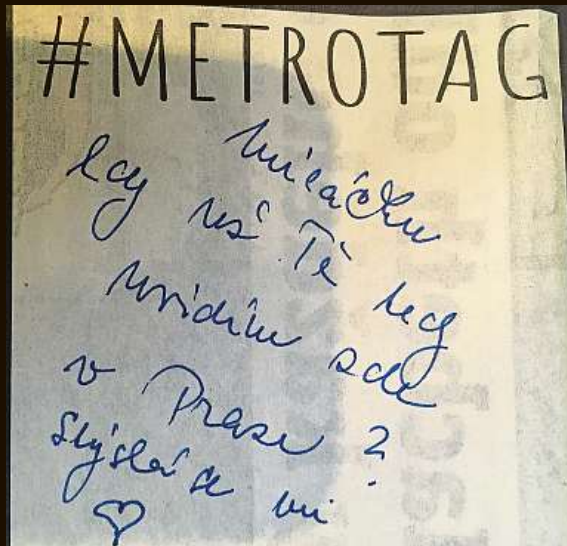 #METROTAG
Miláčku
kdy už Tě kdy
uvidím zde
v Praze ?
Stýská se mi
♡